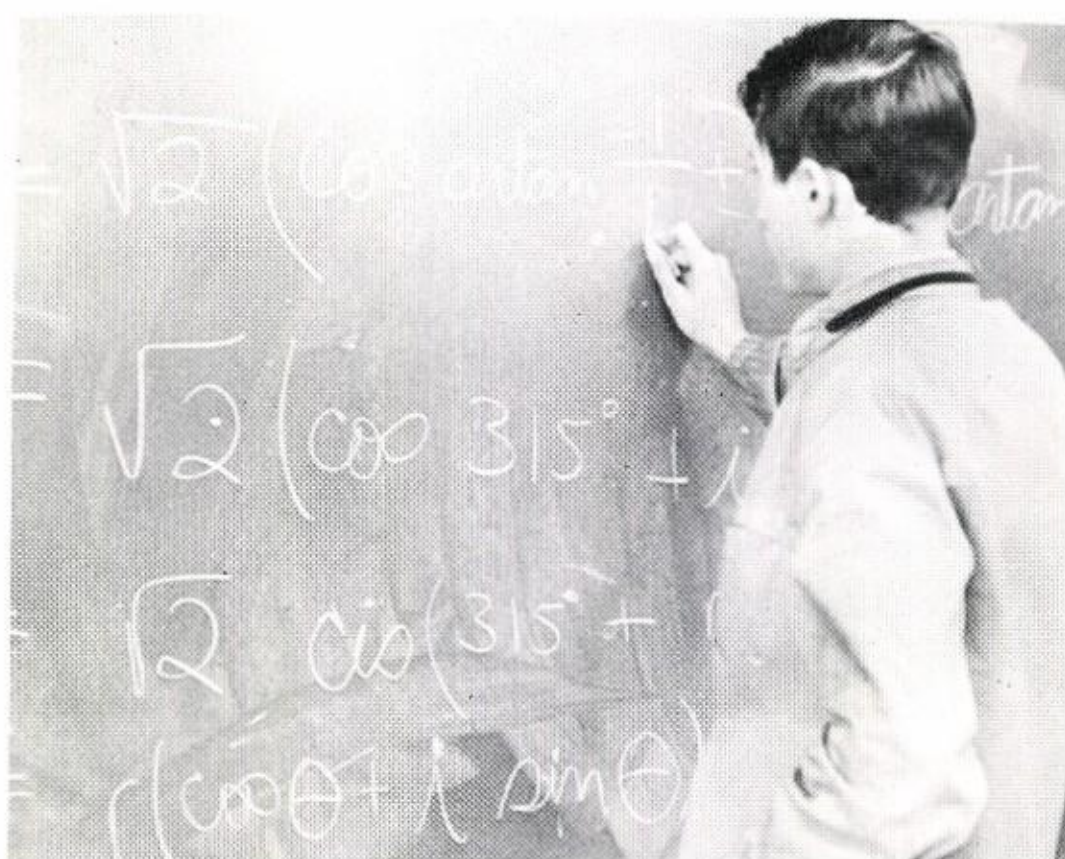 = √2 (cos arctan -1/1 + arctan
= √2 (cos 315° + i
= √2 cis (315° +
= r(cos θ + i sin θ)